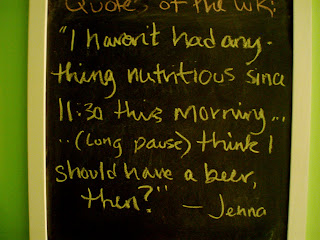 Quotes of the wk:
"I haven't had any-
thing nutritious since
11:30 this morning...
..(long pause) think I
should have a beer,
then?" — Jenna